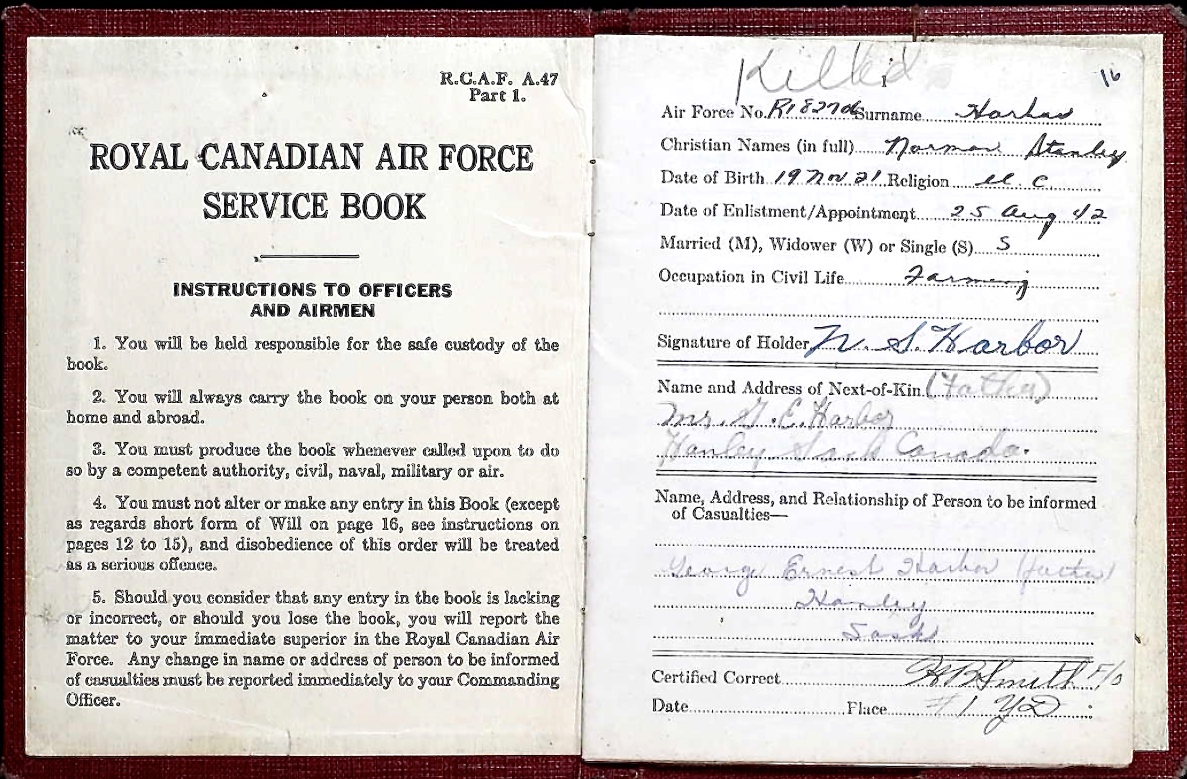 R.C.A.F. A.47
Part 1.
ROYAL CANADIAN AIR FORCE
SERVICE BOOK
INSTRUCTIONS TO OFFICERS
AND AIRMEN
1. You will be held responsible for the safe custody of the
book.
2. You will always carry the book on your person both at
home and abroad.
3. You must produce the book whenever called upon to do
so by a competent authority, civil, naval, military or air.
4. You must not alter or make any entry in this book (except
as regards short form of Will on page 16, see instructions on
pages 12 to 15), and disobedience of this order will be treated
as a serious offence.
5. Should you consider that any entry in the book is lacking
or incorrect, or should you lose the book, you will report the
matter to your immediate superior in the Royal Canadian Air
Force. Any change in name or address of person to be informed
of casualties must be reported immediately to your Commanding
Officer.
16
Killed
Air Force No. R182706 Surname Harbor
Christian Names (in full) Norman Stanley
Date of Birth 19 Nov 21 Religion U C
Date of Enlistment/Appointment 25 Aug 42
Married (M), Widower (W) or Single (S) S
Occupation in Civil Life Farming
Signature of Holder N. S. Harbor
Name and Address of Next-of-Kin (Father)
Mr. E. Harbor
Hanley Canada.
Name, Address, and Relationship of Person to be informed
of Casualties—
George Ernest Harbor (father)
Hanley
Sask
Certified Correct Smith F/O
Date Place #1 YD